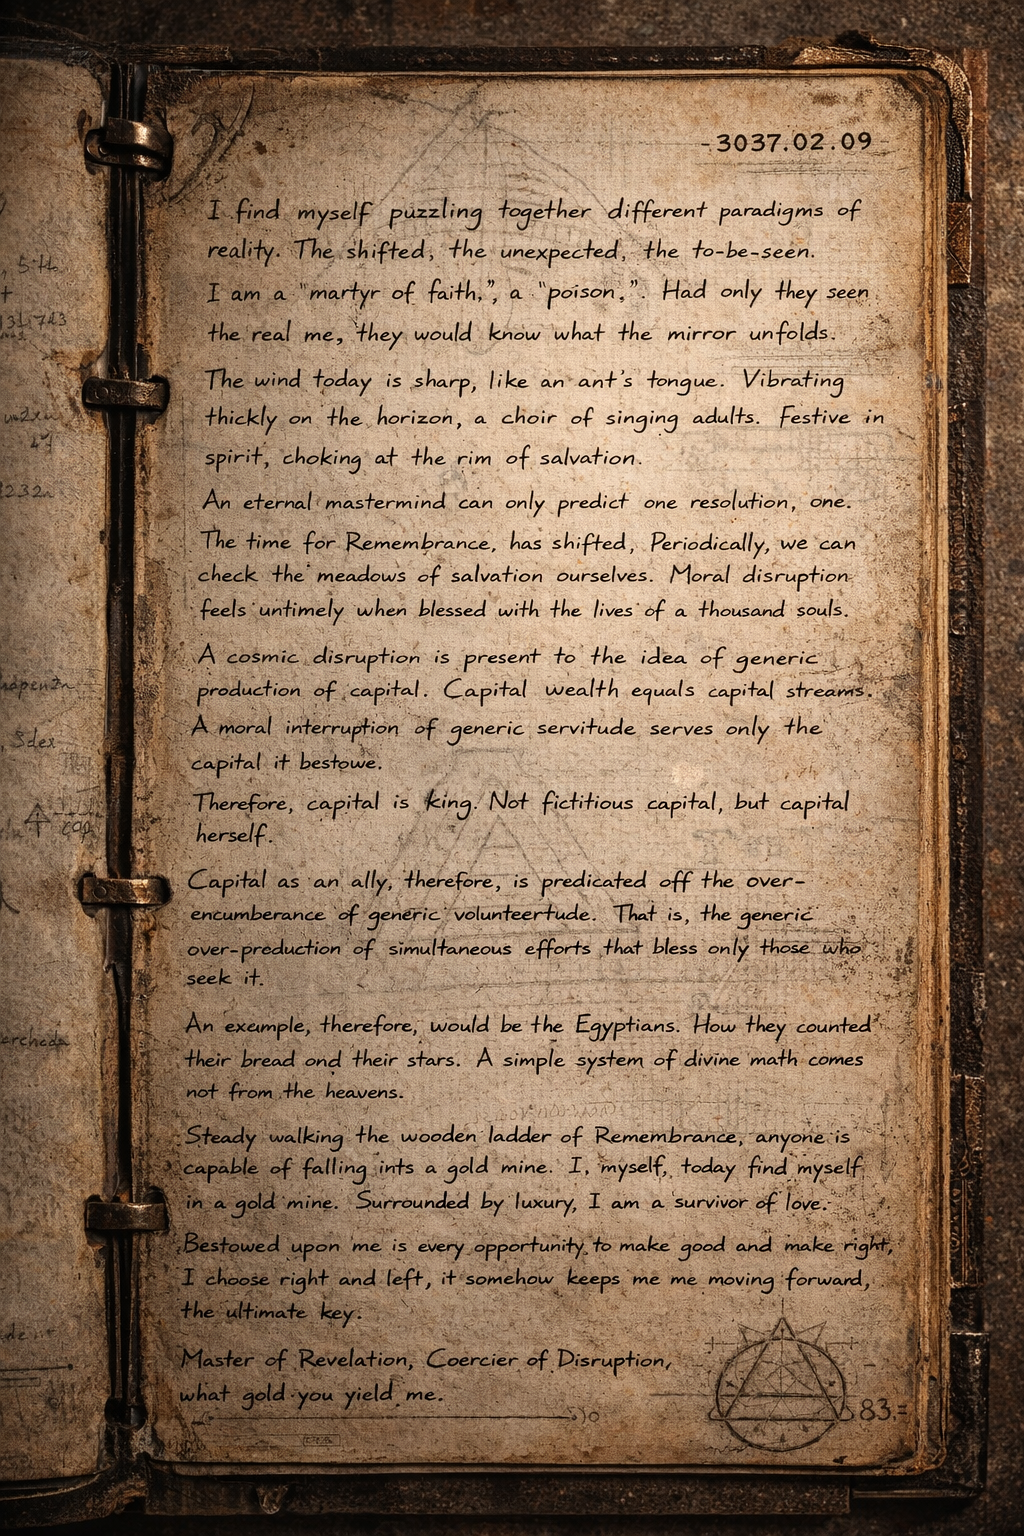 -3037.02.09
I find myself puzzling together different paradigms of
reality. The shifted, the unexpected, the to-be-seen.
I am a "martyr of faith,", a "poison,". Had only they seen
the real me, they would know what the mirror unfolds.
The wind today is sharp, like an ant's tongue. Vibrating
thickly on the horizon, a choir of singing adults. Festive in
spirit, choking at the rim of salvation.
An eternal mastermind can only predict one resolution, one.
The time for Remembrance, has shifted, Periodically, we can
check the meadows of salvation ourselves. Moral disruption
feels untimely when blessed with the lives of a thousand souls.
A cosmic disruption is present to the idea of generic
production of capital. Capital wealth equals capital streams.
A moral interruption of generic servitude serves only the
capital it bestowe.
Therefore, capital is king. Not fictitious capital, but capital
herself.
Capital as an ally, therefore, is predicated off the over-
encumberance of generic volunteertude. That is, the generic
over-preduction of simultaneous efforts that bless only those who
seek it.
An exemple, therefore, would be the Egyptians. How they counted
their bread ond their stars. A simple system of divine math comes
not from the heavens.
Steady walking the wooden ladder of Remembrance, anyone is
capable of falling ints a gold mine. I, myself, today find myself
in a gold mine. Surrounded by luxury, I am a survivor of love.
Bestowed upon me is every opportunity to make good and make right,
I choose right and left, it somehow keeps me me moving forward,
the ultimate key.
Master of Revelation, Coercier of Disruption,
what gold you yield me.
83.=